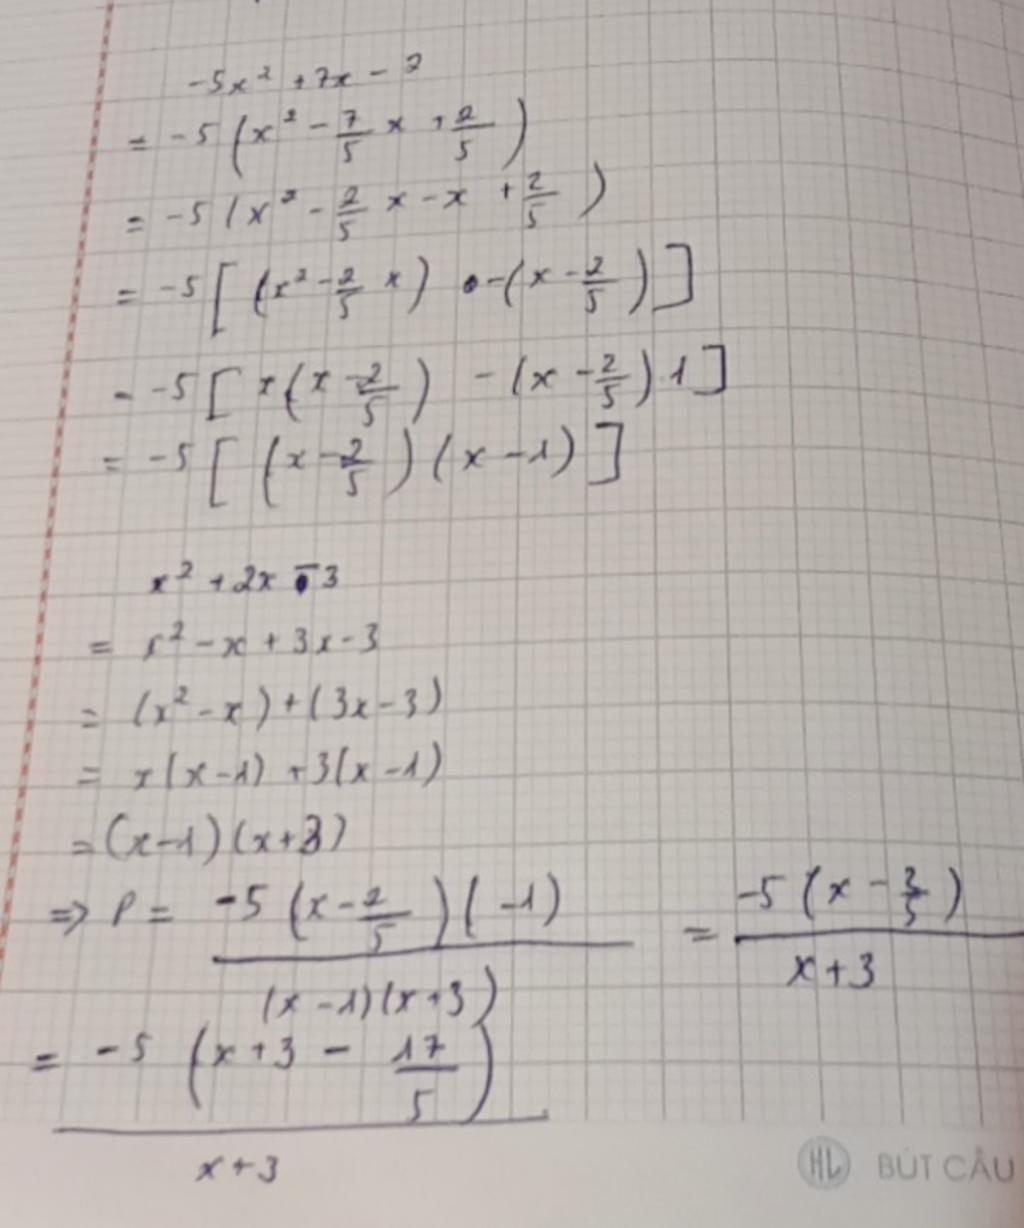 -5x² + 7x - 2
= -5 (x² - 7/5 x + 2/5)
= -5 (x² - 2/5 x - x + 2/5)
= -5 [ (x² - 2/5 x) - (x - 2/5) ]
= -5 [ x (x - 2/5) - (x - 2/5) . 1 ]
= -5 [ (x - 2/5) (x - 1) ]
x² + 2x - 3
= x² - x + 3x - 3
= (x² - x) + (3x - 3)
= x(x - 1) + 3(x - 1)
= (x - 1) (x + 3)
=> P = -5 (x - 2/5) ( -1) / (x - 1)(x + 3) = -5 (x - 2/5) / x + 3
= -5 (x + 3 - 17/5) / x + 3
HL BÚT CÂU